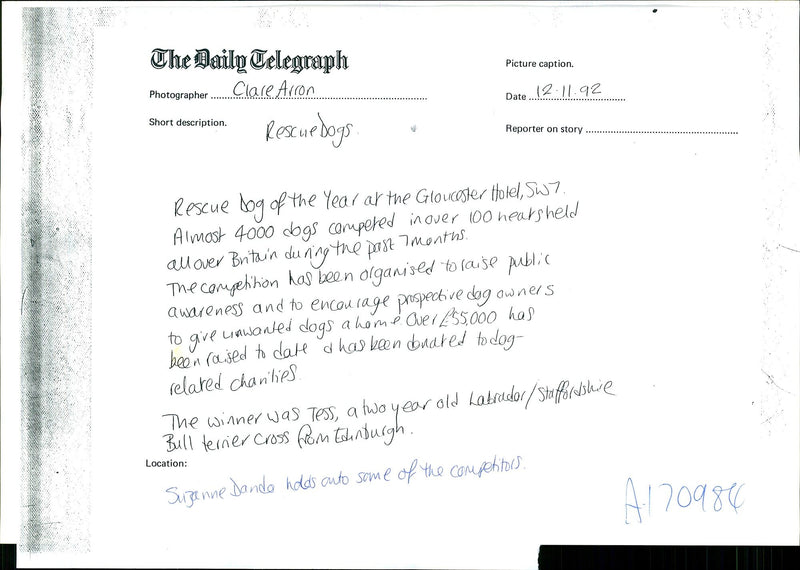 The Daily Telegraph
Picture caption.
Photographer Clare Arron
Date 12·11·92
Short description.
Rescue Dogs.
Reporter on story
Rescue Dog of the Year at the Gloucester Hotel, SW7.
Almost 4000 dogs competed in over 100 heats held
all over Britain during the past 7 months.
The competition has been organised to raise public
awareness and to encourage prospective dog owners
to give unwanted dogs a home Over £55,000 has
been raised to date & has been donated to dog-
related charities.
The winner was Tess, a two year old Labrador/Staffordshire
Bull terrier cross from Edinburgh.
Location:
Suzanne Dando holds onto some of the competitors.
A170984